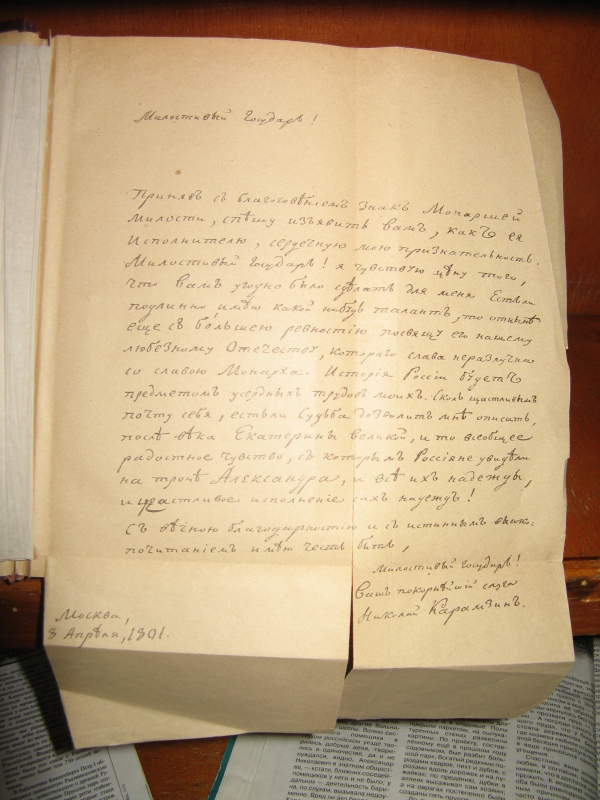 Милостивый Государь!
Принявъ съ благоговѣніемъ знакъ Монаршей
милости, спѣшу изъявить вамъ, какъ ея
Исполнителю, сердечную мою признательность.
Милостивый Государь! я чувствую цѣну того,
что вамъ угодно было сдѣлать для меня. Естьли
подлинно имѣю какой нибудь талантъ, то отнынѣ
еще съ большею ревностію посвящу его нашему
любезному Отечеству, котораго слава неразлучна
со славою Монарха. Исторія Россіи будетъ
предметомъ усердныхъ трудовъ моихъ. Сколь щастливымъ
почту себя, естьли Судьба дозволитъ мнѣ описать,
послѣ вѣка Екатерины великой, и то всеобщее
радостное чувство, съ которымъ Россіяне увидѣли
на тронѣ Александра, и всѣ ихъ надежды,
и щастливое исполненіе сихъ надеждъ!
Съ вѣчною благодарностію и съ истиннымъ
почитаніемъ имѣю честь быть,
Милостивый Государь!
Вашъ покорнѣйшій слуга
Николай Карамзинъ.
Москва,
8 Апрѣля, 1801.